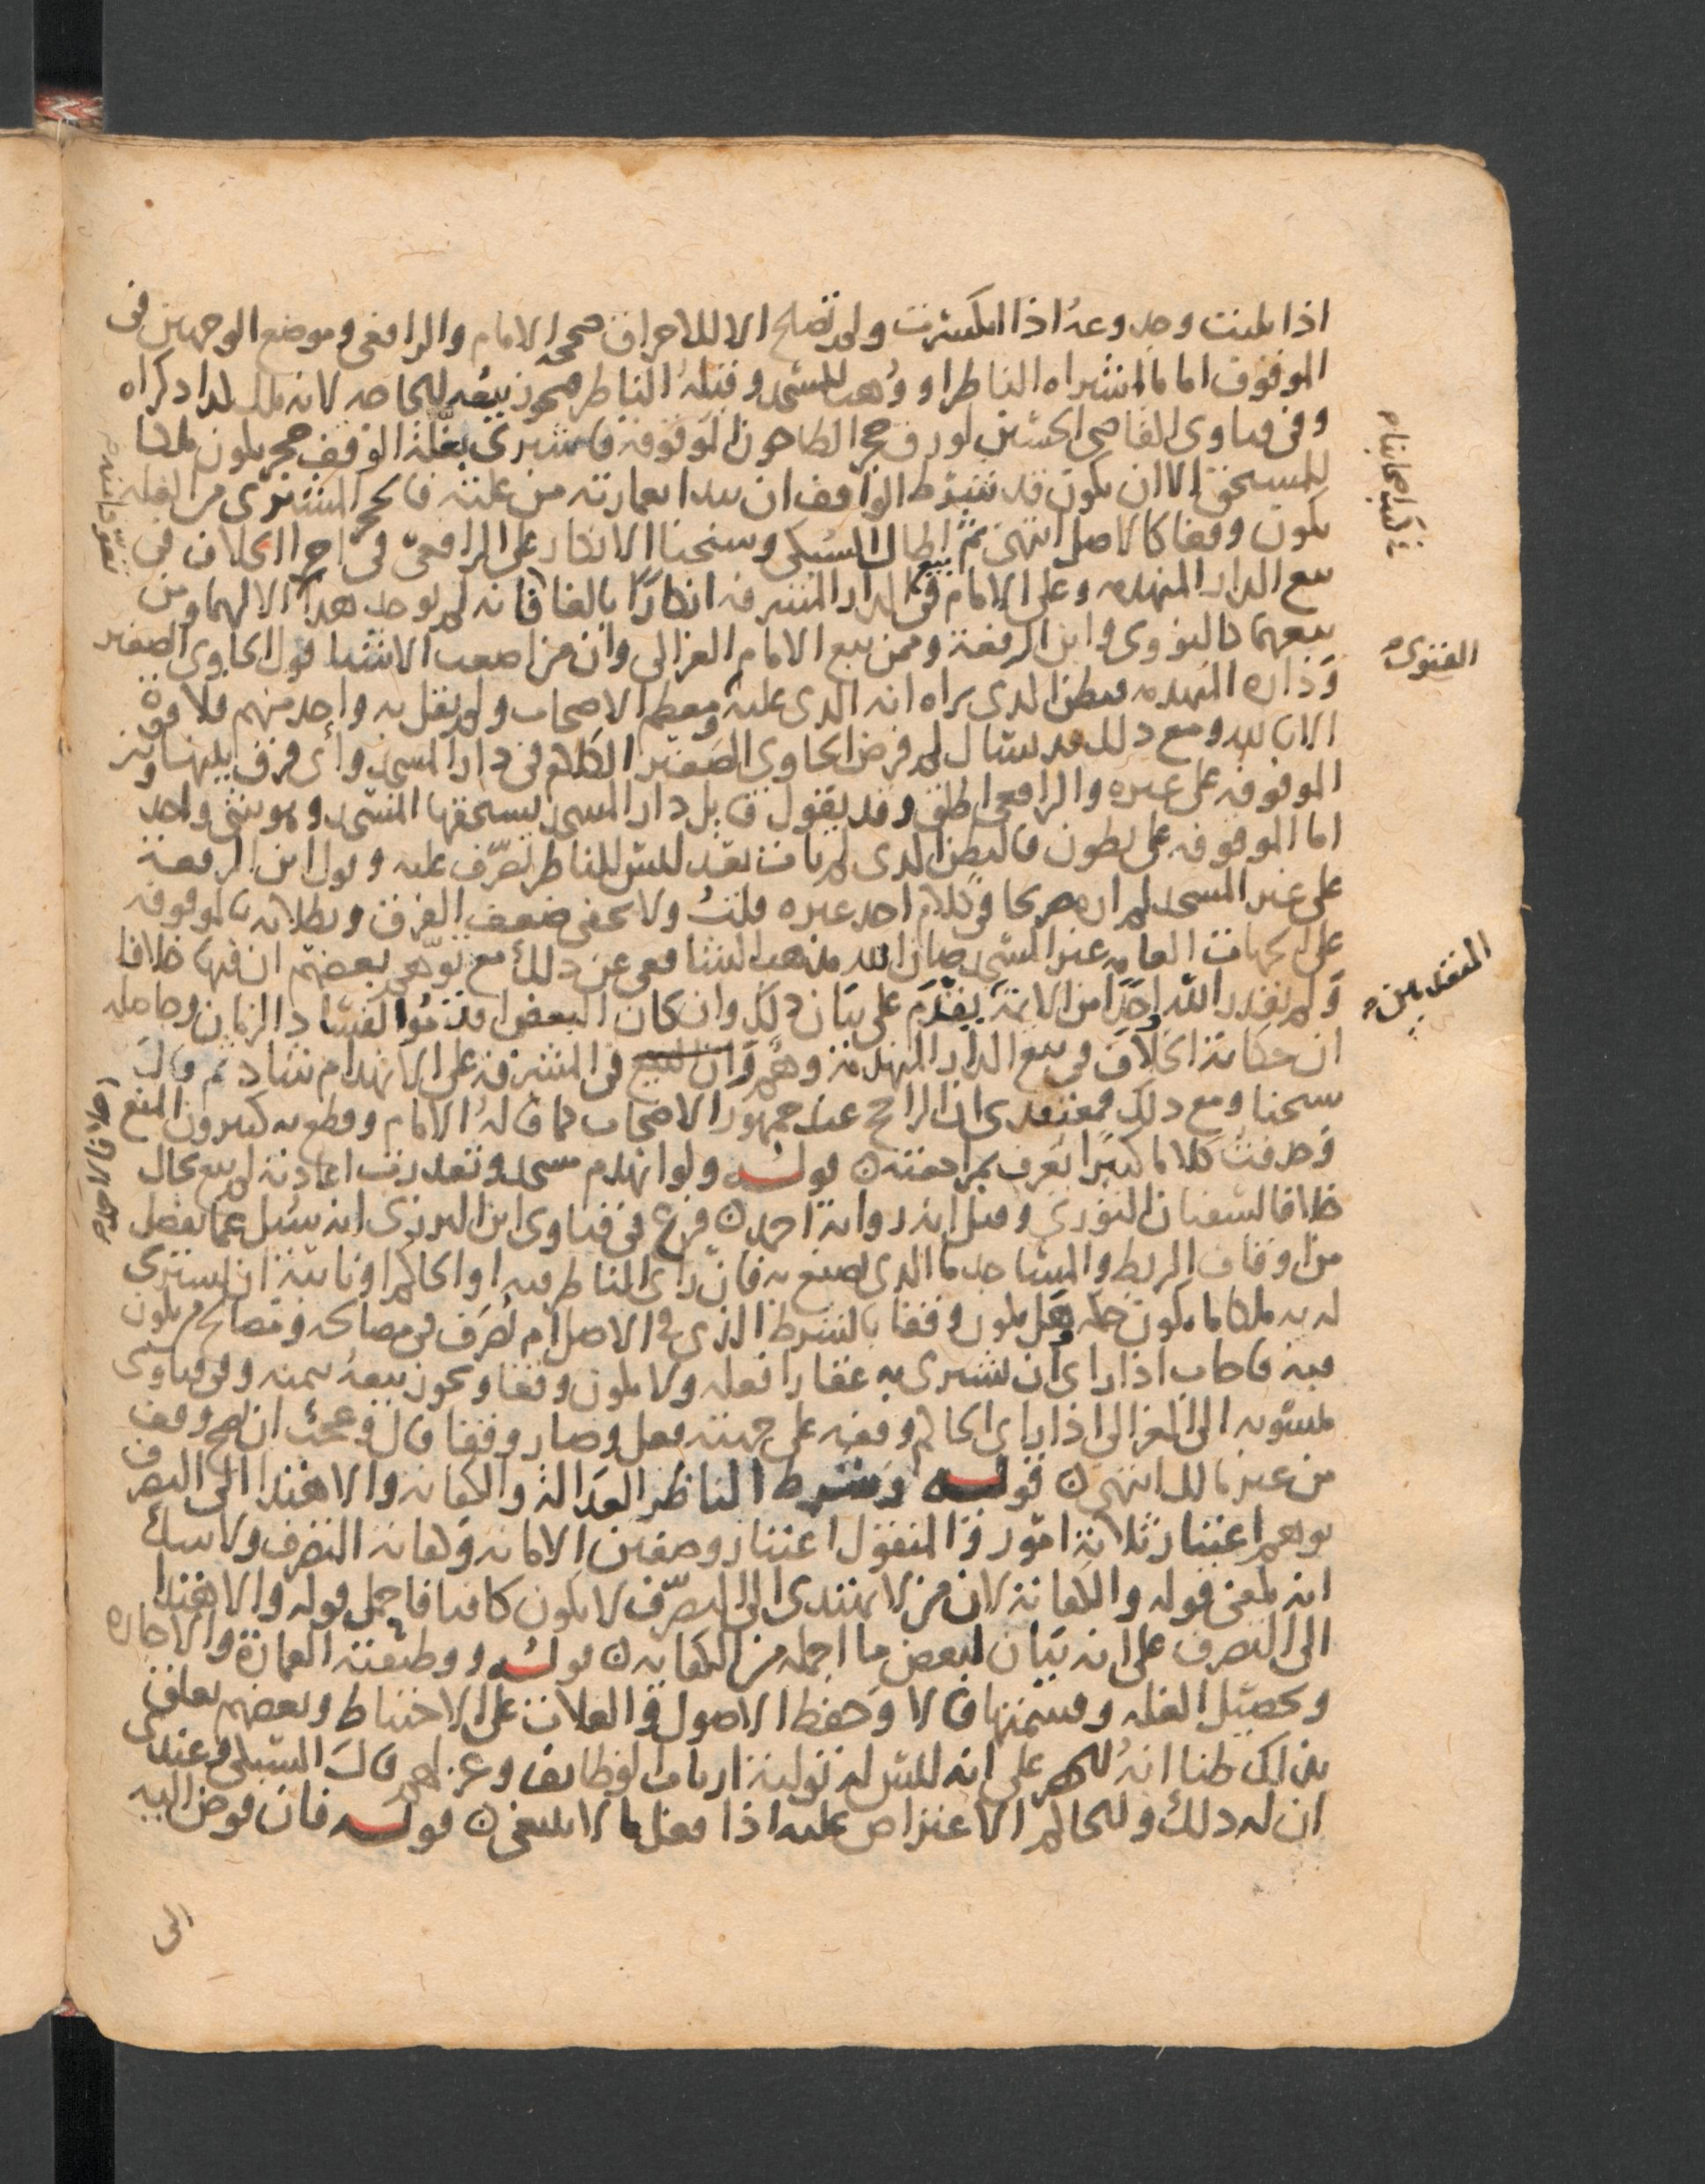 اذا بليت وجذوعه اذا انكسرت ولم تصلح الا للاحراق صححه الامام والرافعي وموضع الوجهين في
الموقوف اما ما اشتراه الناظر او وهب للمسجد وقبله الناظر فيجوز بيعه للحاجه لانه ملك
وفي فتاوى القاضي الحسين لو رق حجر الطاحون الموقوفة فاشترى بغلة الوقف حجر يكون ملكا
للمستحق الا ان يكون قد شرط الواقف ان يبدا بعمارته من غلته فالحجر المشترى من الغله
يكون وقفا كالاصل انتهى ثم اطال السبكي وشيخنا الانكار على الرافعي في اجرا الخلاف في
بيع الدار المنهدمه وعلى الامام في بيع الدار المشرفه انكارا بالغا فانه لم يوجد هذا الا لهما ومن
تبعهما كالنووي وابن الرفعة وممن تبع الامام الغزالي وان من اصعب الاشيا قول الحاوي الصغير
وداره المنهدمه فيظن الذي يراه انه الذي عليه معظم الاصحاب ولم يقل به واحد منهم فلا قوة
الا بالله ومع ذلك قد يسال لم فرض الحاوي الصغير الكلام في دار المسجد واي فرق بينها وبين
الموقوفه على غيره والرافعي اطلق وقد يقول قايل دار المسجد يستحقها المسجد وهو شي واحد
اما الموقوفه على بطون فالبطن الذي لم يات بعد ليس للناظر تصرف عليه وقول ابن الرفعة
على غير المسجد لم اره صريحا في كلام احد غيره قلت ولا يخفى ضعف الفرق وبطلانه بالموقوفه
على الجهات العامه غير المسجد صان الله مذهب الشافعي عن ذلك مع توهم بعضهم ان فيها خلافا
ولم يقدر الله احدا من الايمة يقدم على بيان ذلك وان كان البعض قد نموا لفساد الزمان وحاصله
ان حكاية الخلاف في بيع الدار المنهدمة وهم وان البيع في المشرفة على الانهدام شاذ ثم قال
شيخنا ومع ذلك فمعتمدي ان الراجح عند جمهور الاصحاب كما قاله الامام وقطع به كثيرون المنع
وحذفت كلاما كثيرا يعرف بمراجعته ٥ قوله ولو انهدم مسجد وتعذرت اعادته لم يبع بحال
خلافا لسفيان الثوري وقيل انه رواية احمد ٥ فرع في فتاوى ابن البزري انه سئل عما يفضل
من اوقاف الربط والمساجد ما الذي يصنع به فان راى الناظر فيه او الحاكم او نائبه ان يشتري
له به ملكا ما يكون حكمه هل يكون وقفا بالشرط الذي في الاصل ام تصرف في مصالحه وتصالح م يكون
فيه فاجاب اذا راى ان يشتري به عقارا فعله ولا يكون وقفا ويجوز بيعه بثمنه وفي فتاوى
منسوبه الى الغزالي اذا راى الحاكم وقفه على جهته فعل وصار وقفا قال وبحث ان صح وقف
من غير مالك انتهى ٥ قوله وشرط الناظر العدالة والكفاية والاهتدا الى التصرف
يوهم اعتبار ثلاثة امور والمنقول اعتبار وصفين الامانه وكفاية التصرف ولا شك
انه بمعنى قوله والكفاية لان من لا يهتدي الى التصرف لا يكون كافيا فاجمل قوله والاهتدا
الى التصرف على انه بيان لبعض ما اجمله من الكفايه ٥ قوله ووظيفته العمارة والاجاره
وتحصيل الغله وقسمتها قالا وحفظ الاصول والغلات على الاحتياط وبعضهم تعلق
بذلك ظنا انه للحصر على انه ليس له تولية ارباب الوظايف وعزلهم قال السبكي وعندي
ان له ذلك وللحاكم الاعتراض عليه اذا فعل ما لا ينبغي ٥ قوله فان فوض اليه
الى
ع كتب اصحابنا م
الفتوى م
المتقدمين م
خلافا لاحمد م